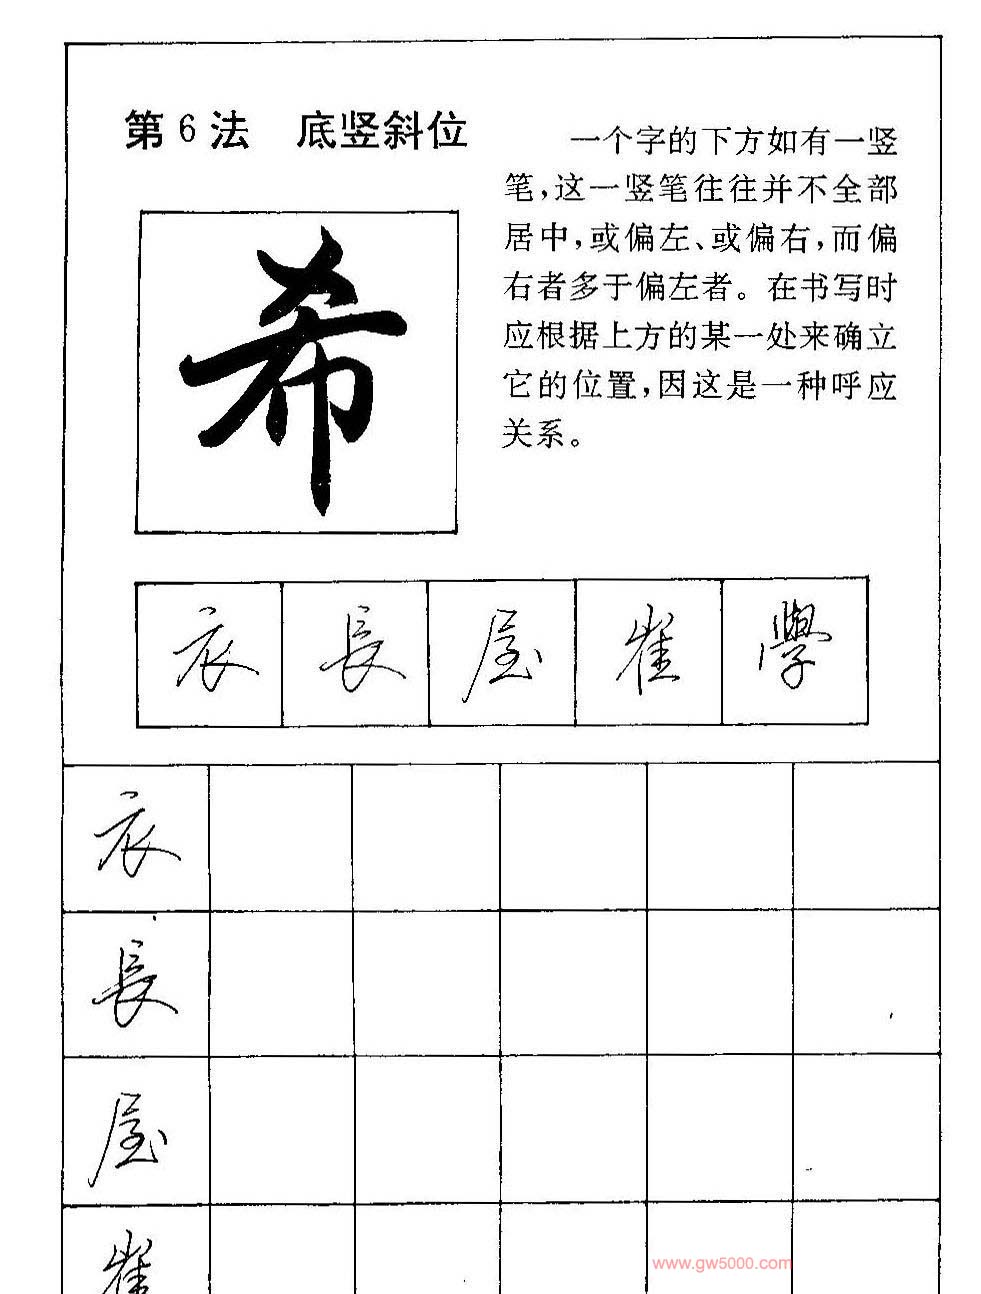 第6法 底竖斜位
一个字的下方如有一竖
笔,这一竖笔往往并不全部
居中,或偏左、或偏右,而偏
右者多于偏左者。在书写时
应根据上方的某一处来确立
它的位置,因这是一种呼应
关系。
希
衣 長 屋 崔 學
衣
長
屋
崔
www.gw5000.com